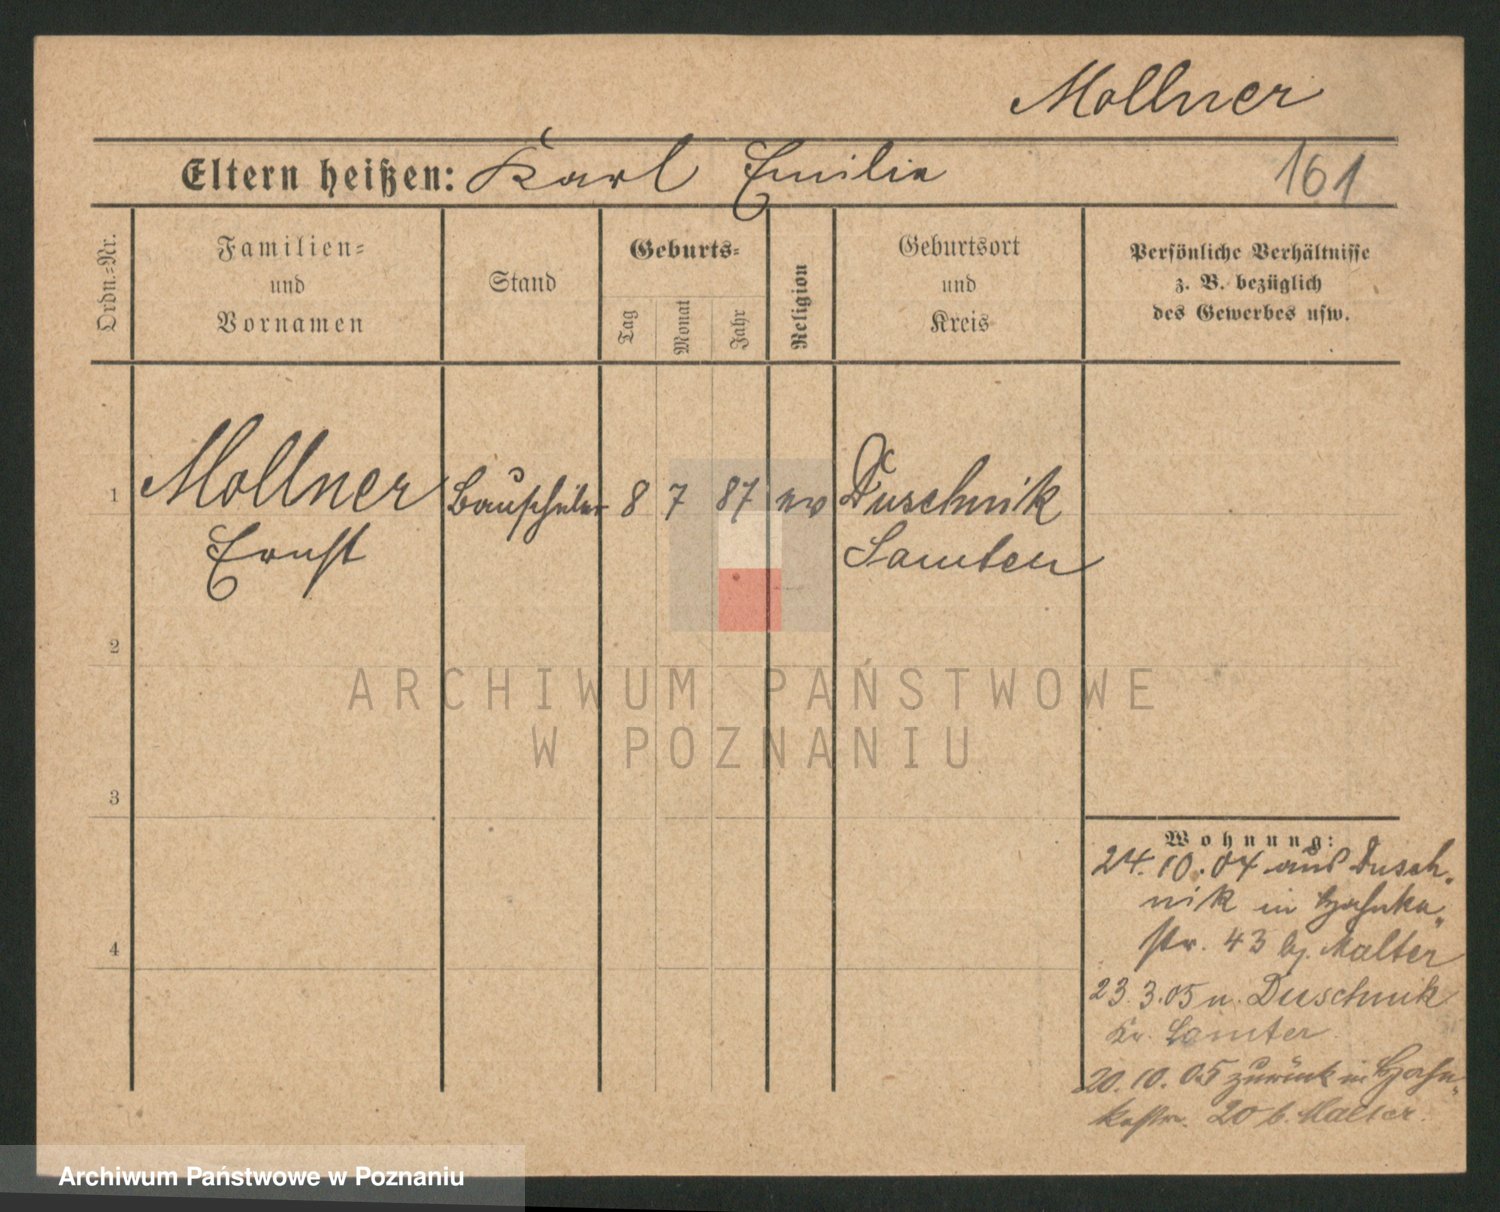 Mollner
Eltern heißen: Karl Emilie
161
Ordn.-Nr.
Familien-
und
Vornamen
Stand
Geburts-
Tag
Monat
Jahr
Religion
Geburtsort
und
Kreis
Persönliche Verhältnisse
z. B. bezüglich
des Gewerbes usw.
1 Mollner Bauschüler 8 7 87 ev Duschnik
Ernst Samter
2
3
4
ARCHIWUM PAŃSTWOWE
W POZNANIU
Wohnung:
24.10.04 aus Dusch-
nik in
str. 43 bj. Malter
23.3.05 n. Duschnik
Kr. Samter
20.10.05 zurück in
20 b. Malter.
Archiwum Państwowe w Poznaniu